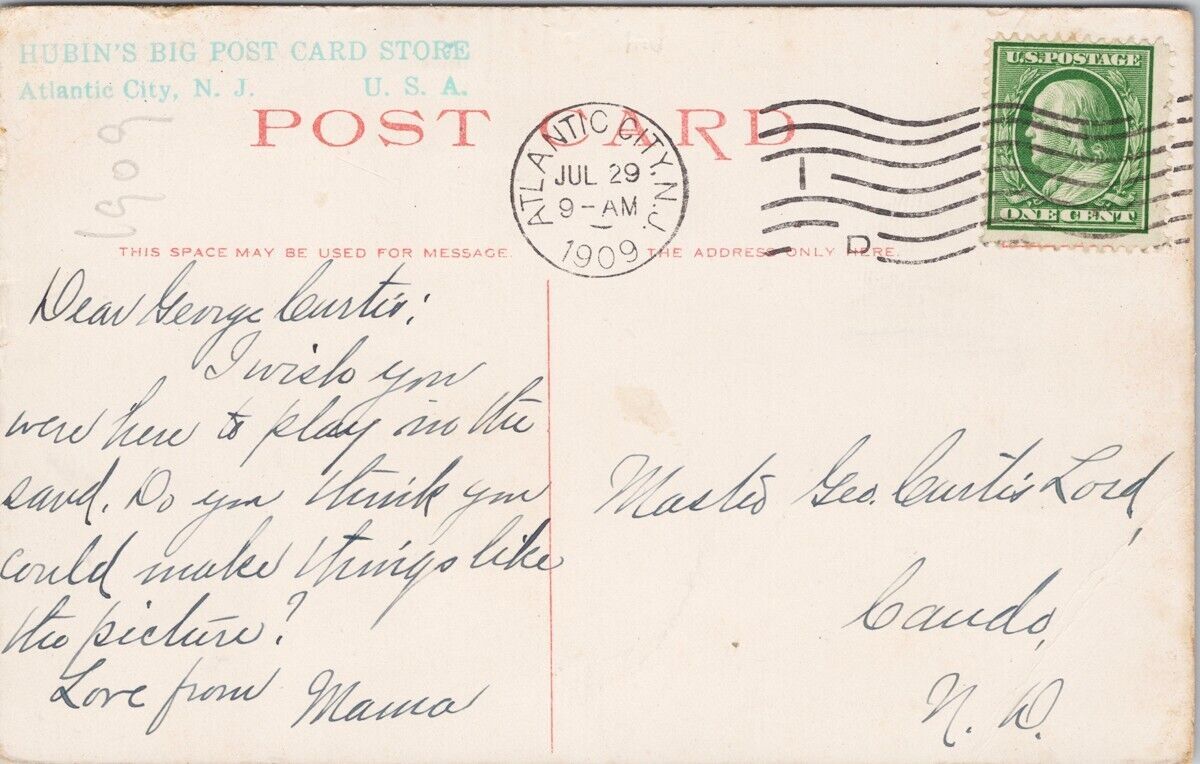 HUBIN'S BIG POST CARD STORE
Atlantic City, N. J. U. S. A.
1909
POST CARD
ATLANTIC CITY, N.J.
JUL 29
9-AM
1909
I
D
U.S. POSTAGE
ONE CENT
THIS SPACE MAY BE USED FOR MESSAGE.
THE ADDRESS ONLY HERE.
Dear George Curtis:
I wish you
were here to play in the
sand. Do you think you
could make things like
the picture?
Love from Mama
Master Geo. Curtis Lord,
Cando,
N. D.